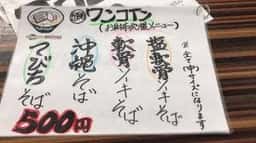 ワンコイン
(お昼時限定メニュー)
※全て(中)サイズになります
塩軟骨ソーキそば
軟骨ソーキそば
沖縄そば
てびちそば
500円